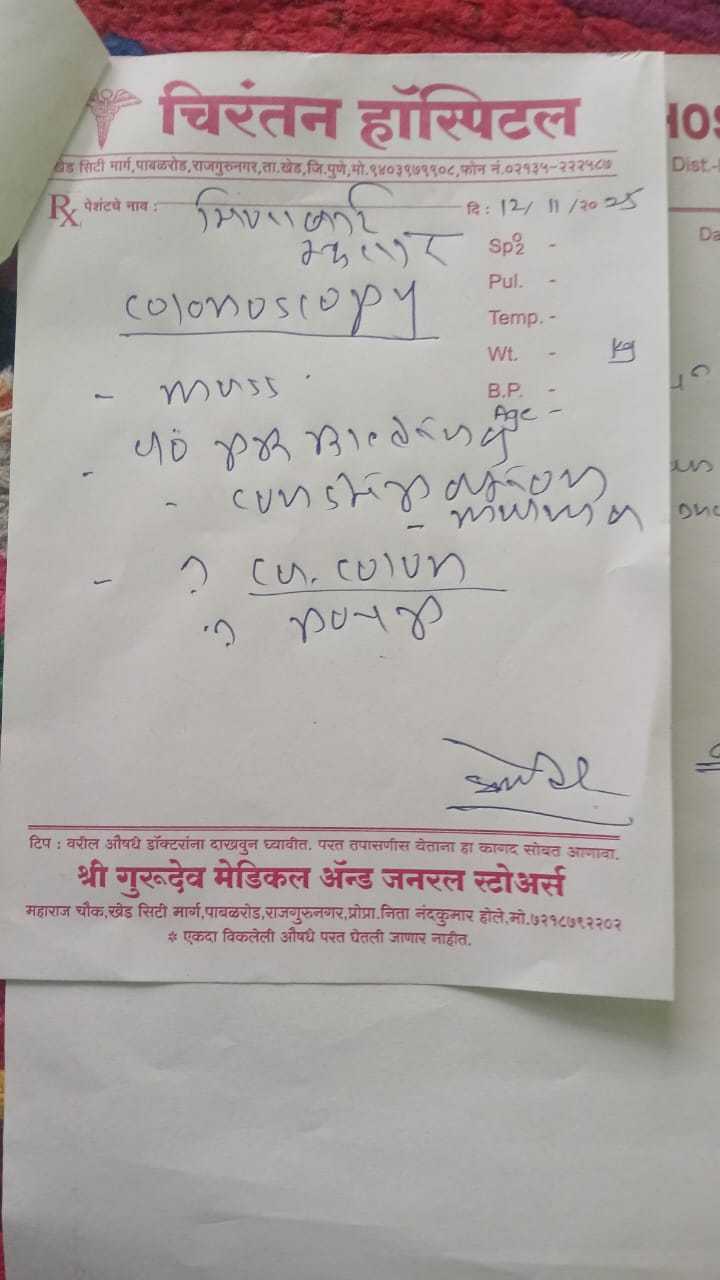 चिरंतन हॉस्पिटल
खेड सिटी मार्ग,पाबळरोड,राजगुरुनगर,ता.खेड,जि.पुणे,मो.९४०३९७९९०८,फोन नं.०२१३५-२२२५८७
Rx पेशंटचे नाव :
दि : 12/ 11 /२० 25
Sp02 -
colonoscopy
Pul. -
Temp. -
Wt. - kg
B.P. -
- mass
Age -
- c/o per bleeding
- constipation
- ? ca. colon
? polyp
टिप : वरील औषधे डॉक्टरांना दाखवुन घ्यावीत. परत तपासणीस येताना हा कागद सोबत आणावा.
श्री गुरुदेव मेडिकल ॲन्ड जनरल स्टोअर्स
महाराज चौक,खेड सिटी मार्ग,पाबळरोड,राजगुरुनगर,प्रोप्रा.निता नंदकुमार होले,मो.७२१८७९२२०२
* एकदा विकलेली औषधे परत घेतली जाणार नाहीत.
HOS
Dist.-
Da